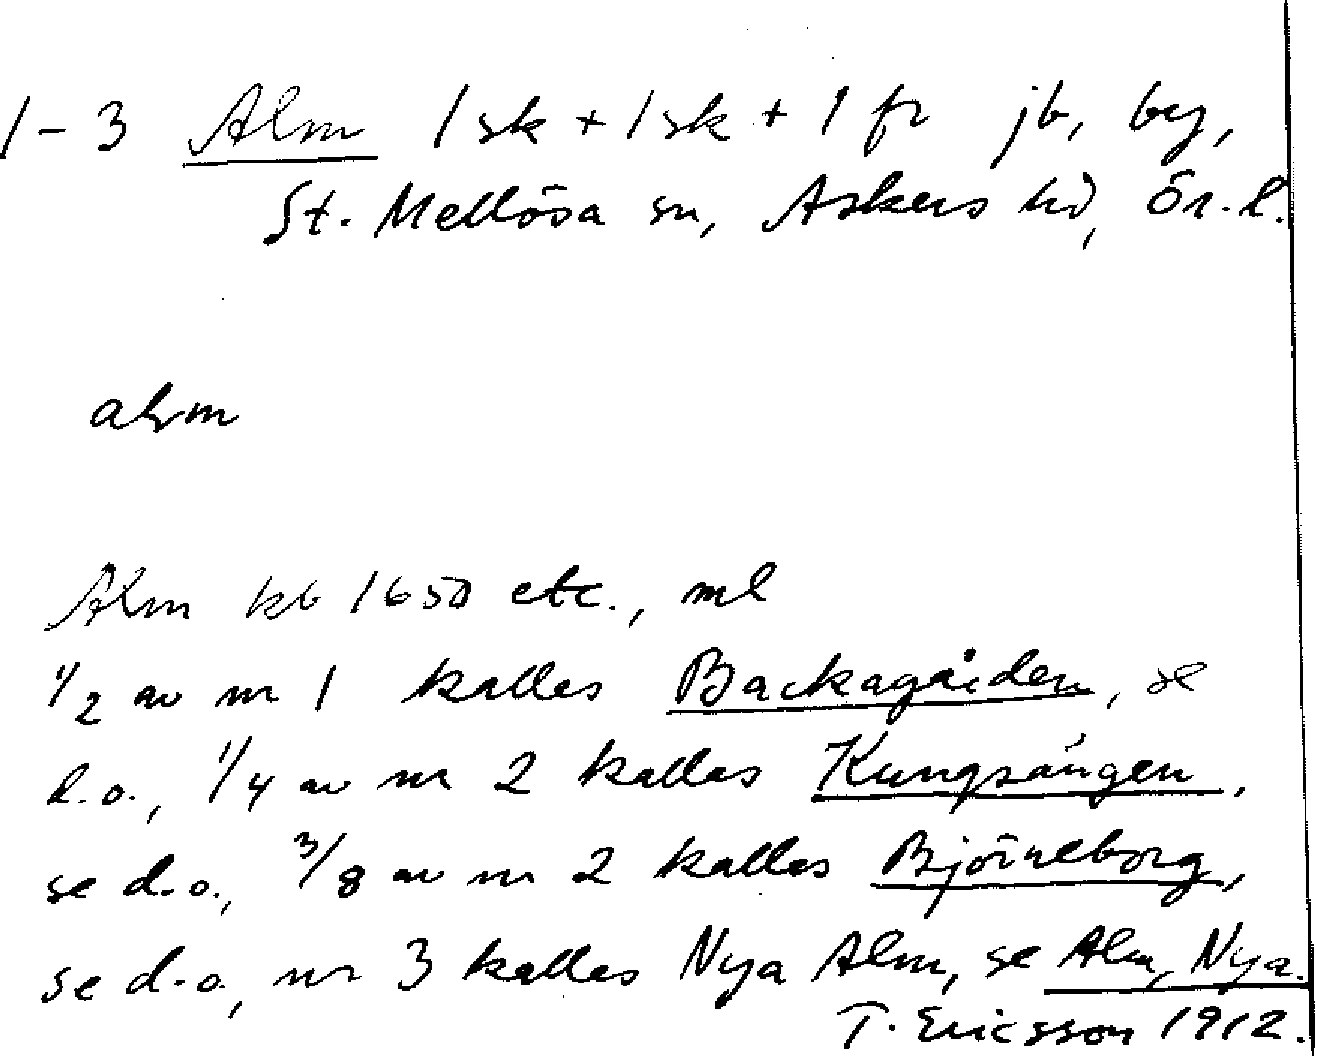 1-3 Alm 1 sk + 1 sk + 1 fr jb, by,
St. Mellösa sn, Askers hd, Ör. l.
alm
Alm kb 1650 etc., ml
1/2 av nr 1 kalles Backagården, se
d.o., 1/4 av nr 2 kallas Kungsängen,
se d.o., 3/8 av nr 2 kallas Björneborg,
se d.o., nr 3 kalles Nya Alm, se Alm, Nya.
T. Ericsson 1912.